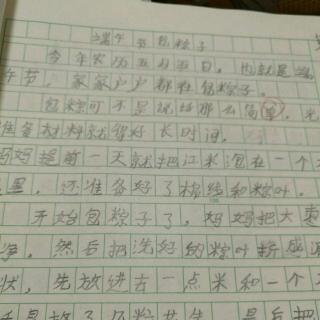 端午节包粽子
今年农历五月五日，也就是端
午节，家家户户都在包粽子。
包粽可不是说话那么简单，光
准备材料就得好长时间。
妈妈提前一天就把江米泡在一个
里，还准备好了棉绳和粽叶。
开始包粽子了，妈妈把大枣
净，然后把洗好的粽叶折成漏
状，先放进去一点米和一个
最后把